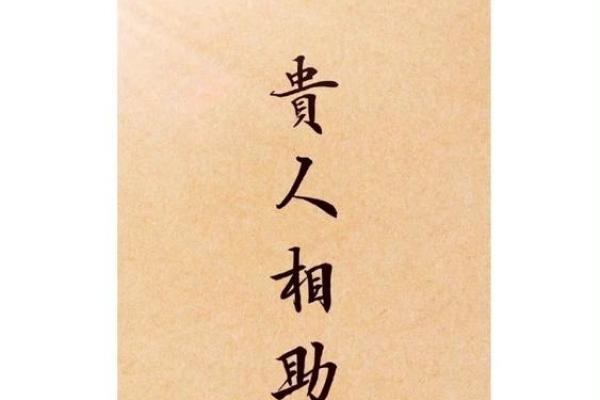 貴人相助